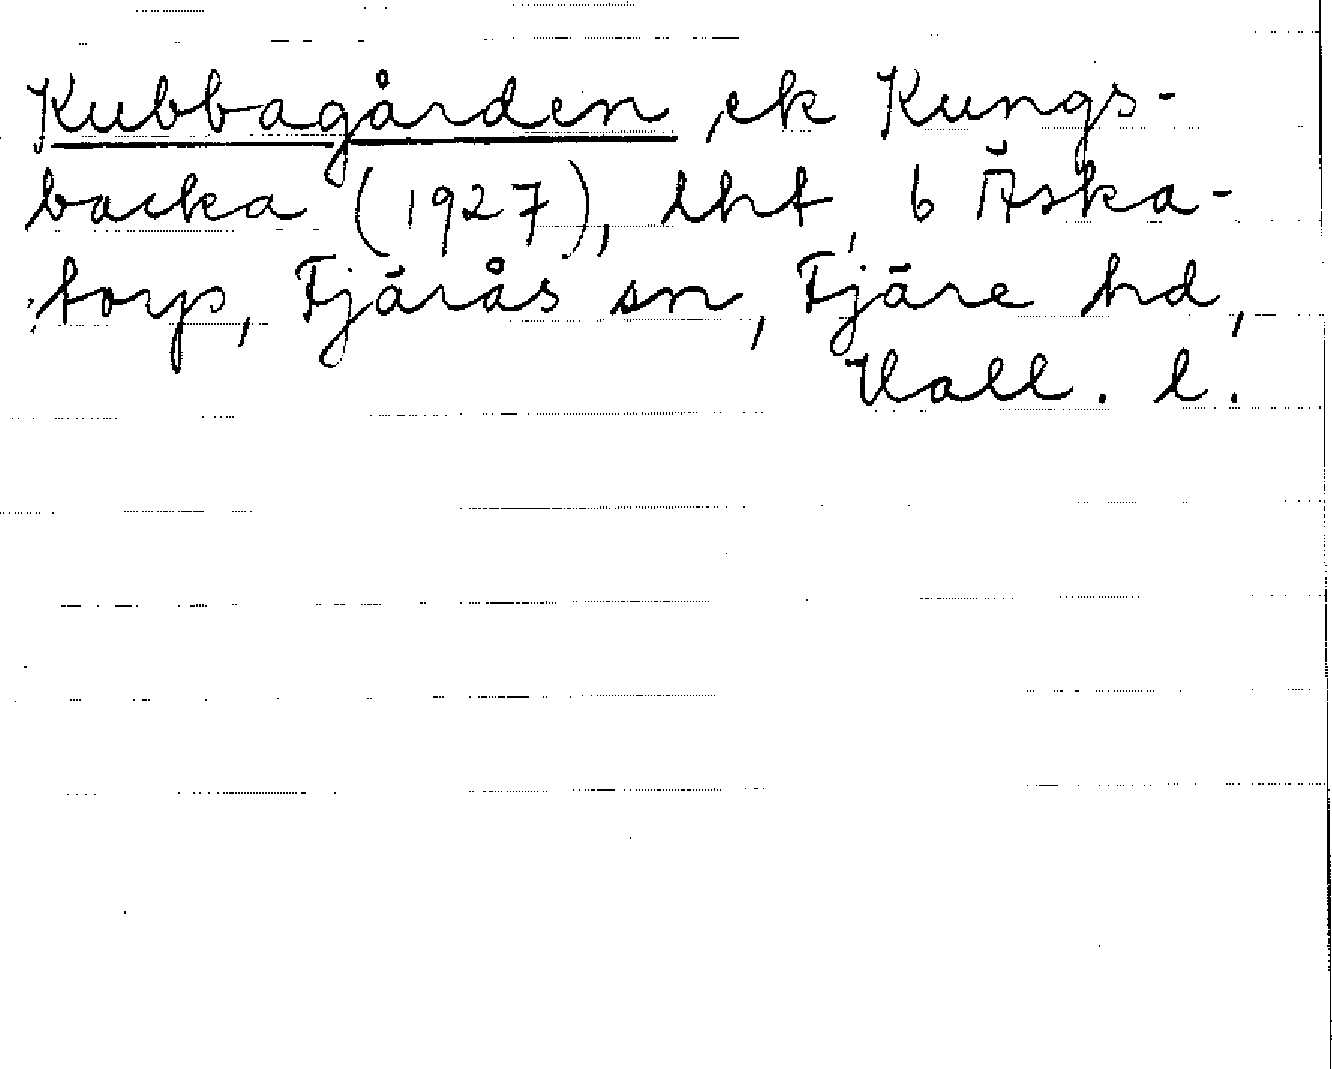 Kubbagården, ek Kungs-
backa (1927), lht, 6 Äska-
torp, Fjärås sn, Fjäre hd,
Hall. l.